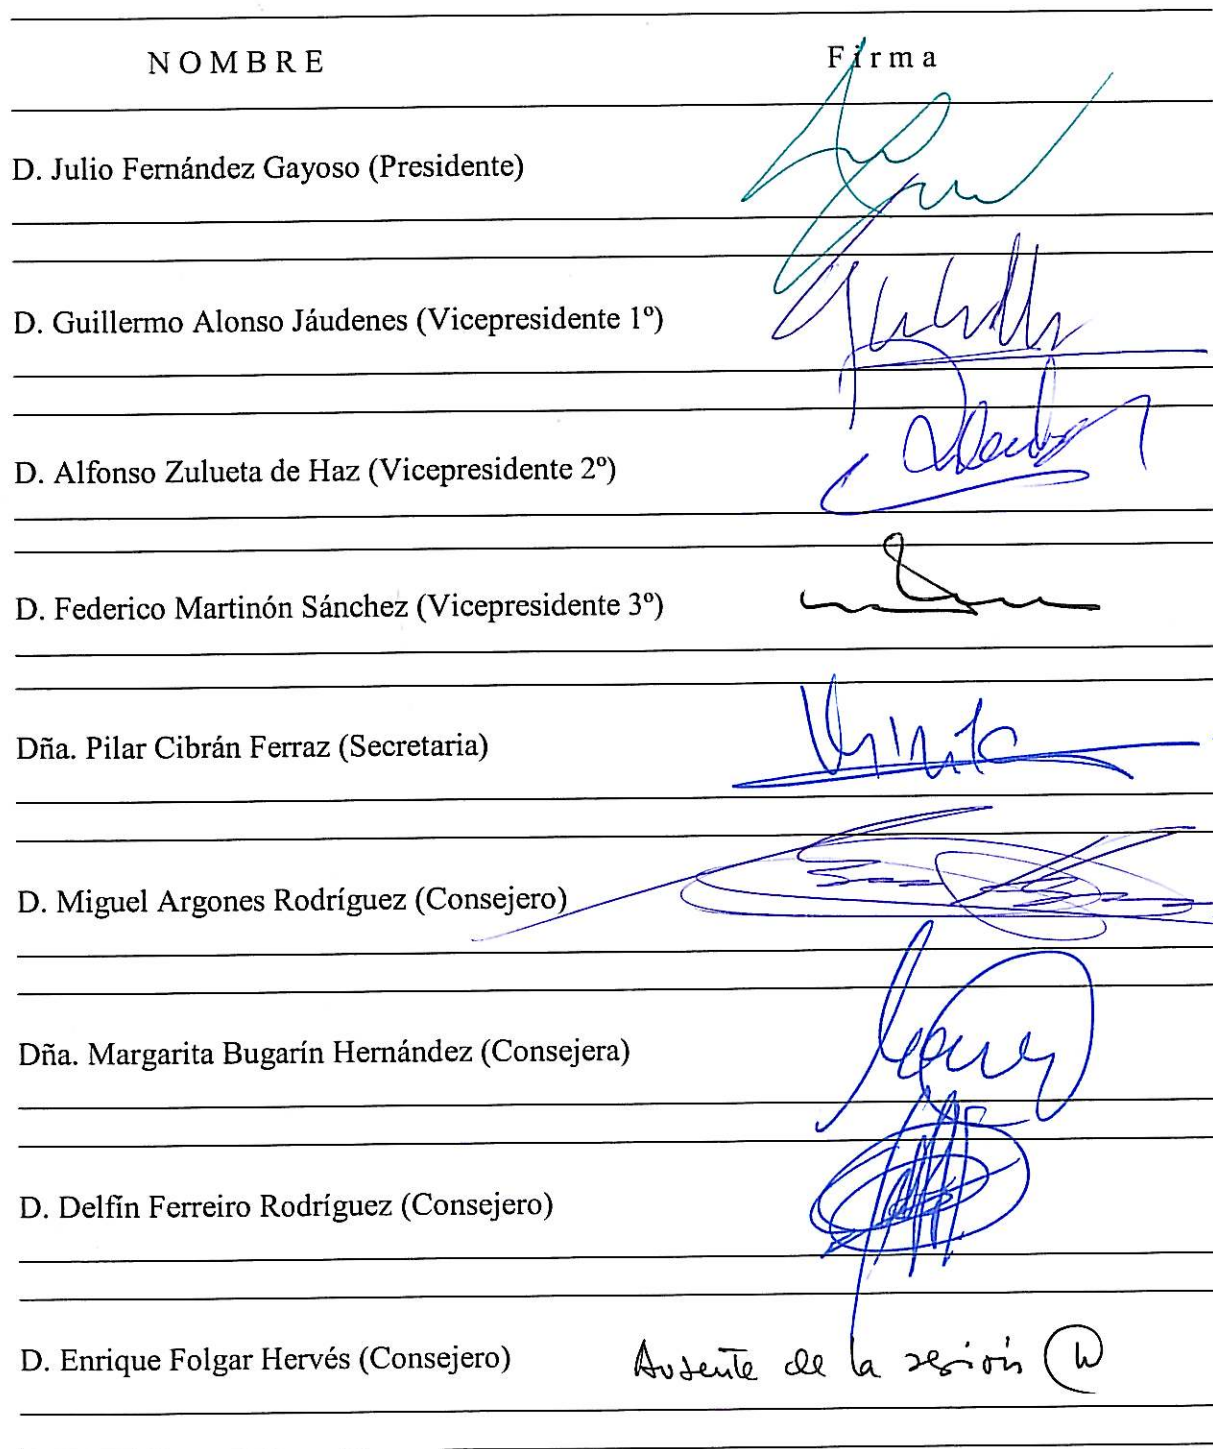 NOMBRE Firma
D. Julio Fernández Gayoso (Presidente)
D. Guillermo Alonso Jáudenes (Vicepresidente 1º)
D. Alfonso Zulueta de Haz (Vicepresidente 2º)
D. Federico Martinón Sánchez (Vicepresidente 3º)
Dña. Pilar Cibrán Ferraz (Secretaria)
D. Miguel Argones Rodríguez (Consejero)
Dña. Margarita Bugarín Hernández (Consejera)
D. Delfín Ferreiro Rodríguez (Consejero)
D. Enrique Folgar Hervés (Consejero) Ausente de la sesión